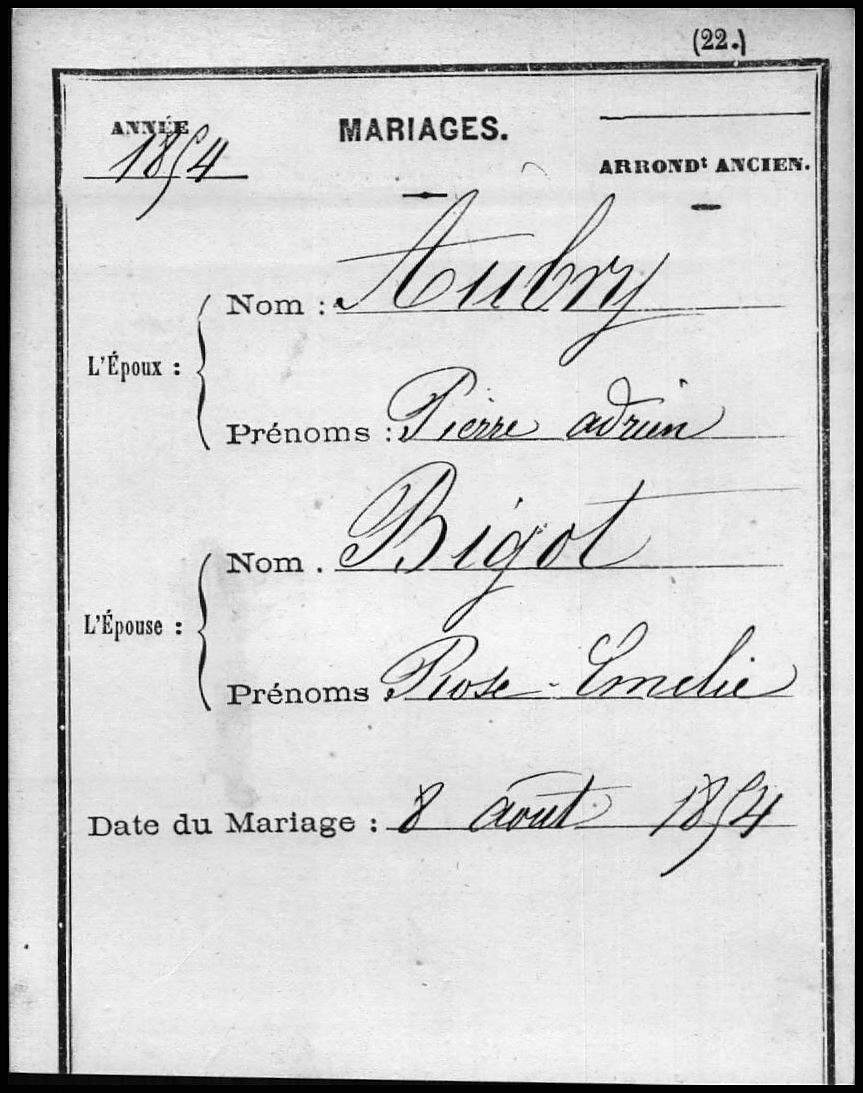 (22.)
ANNÉE
1854
MARIAGES.
ARRONDt ANCIEN.
L'Époux :
Nom : Aubry
Prénoms : Pierre adrien
L'Épouse :
Nom . Bigot
Prénoms . Rose-Emelie
Date du Mariage : 8 août 1854